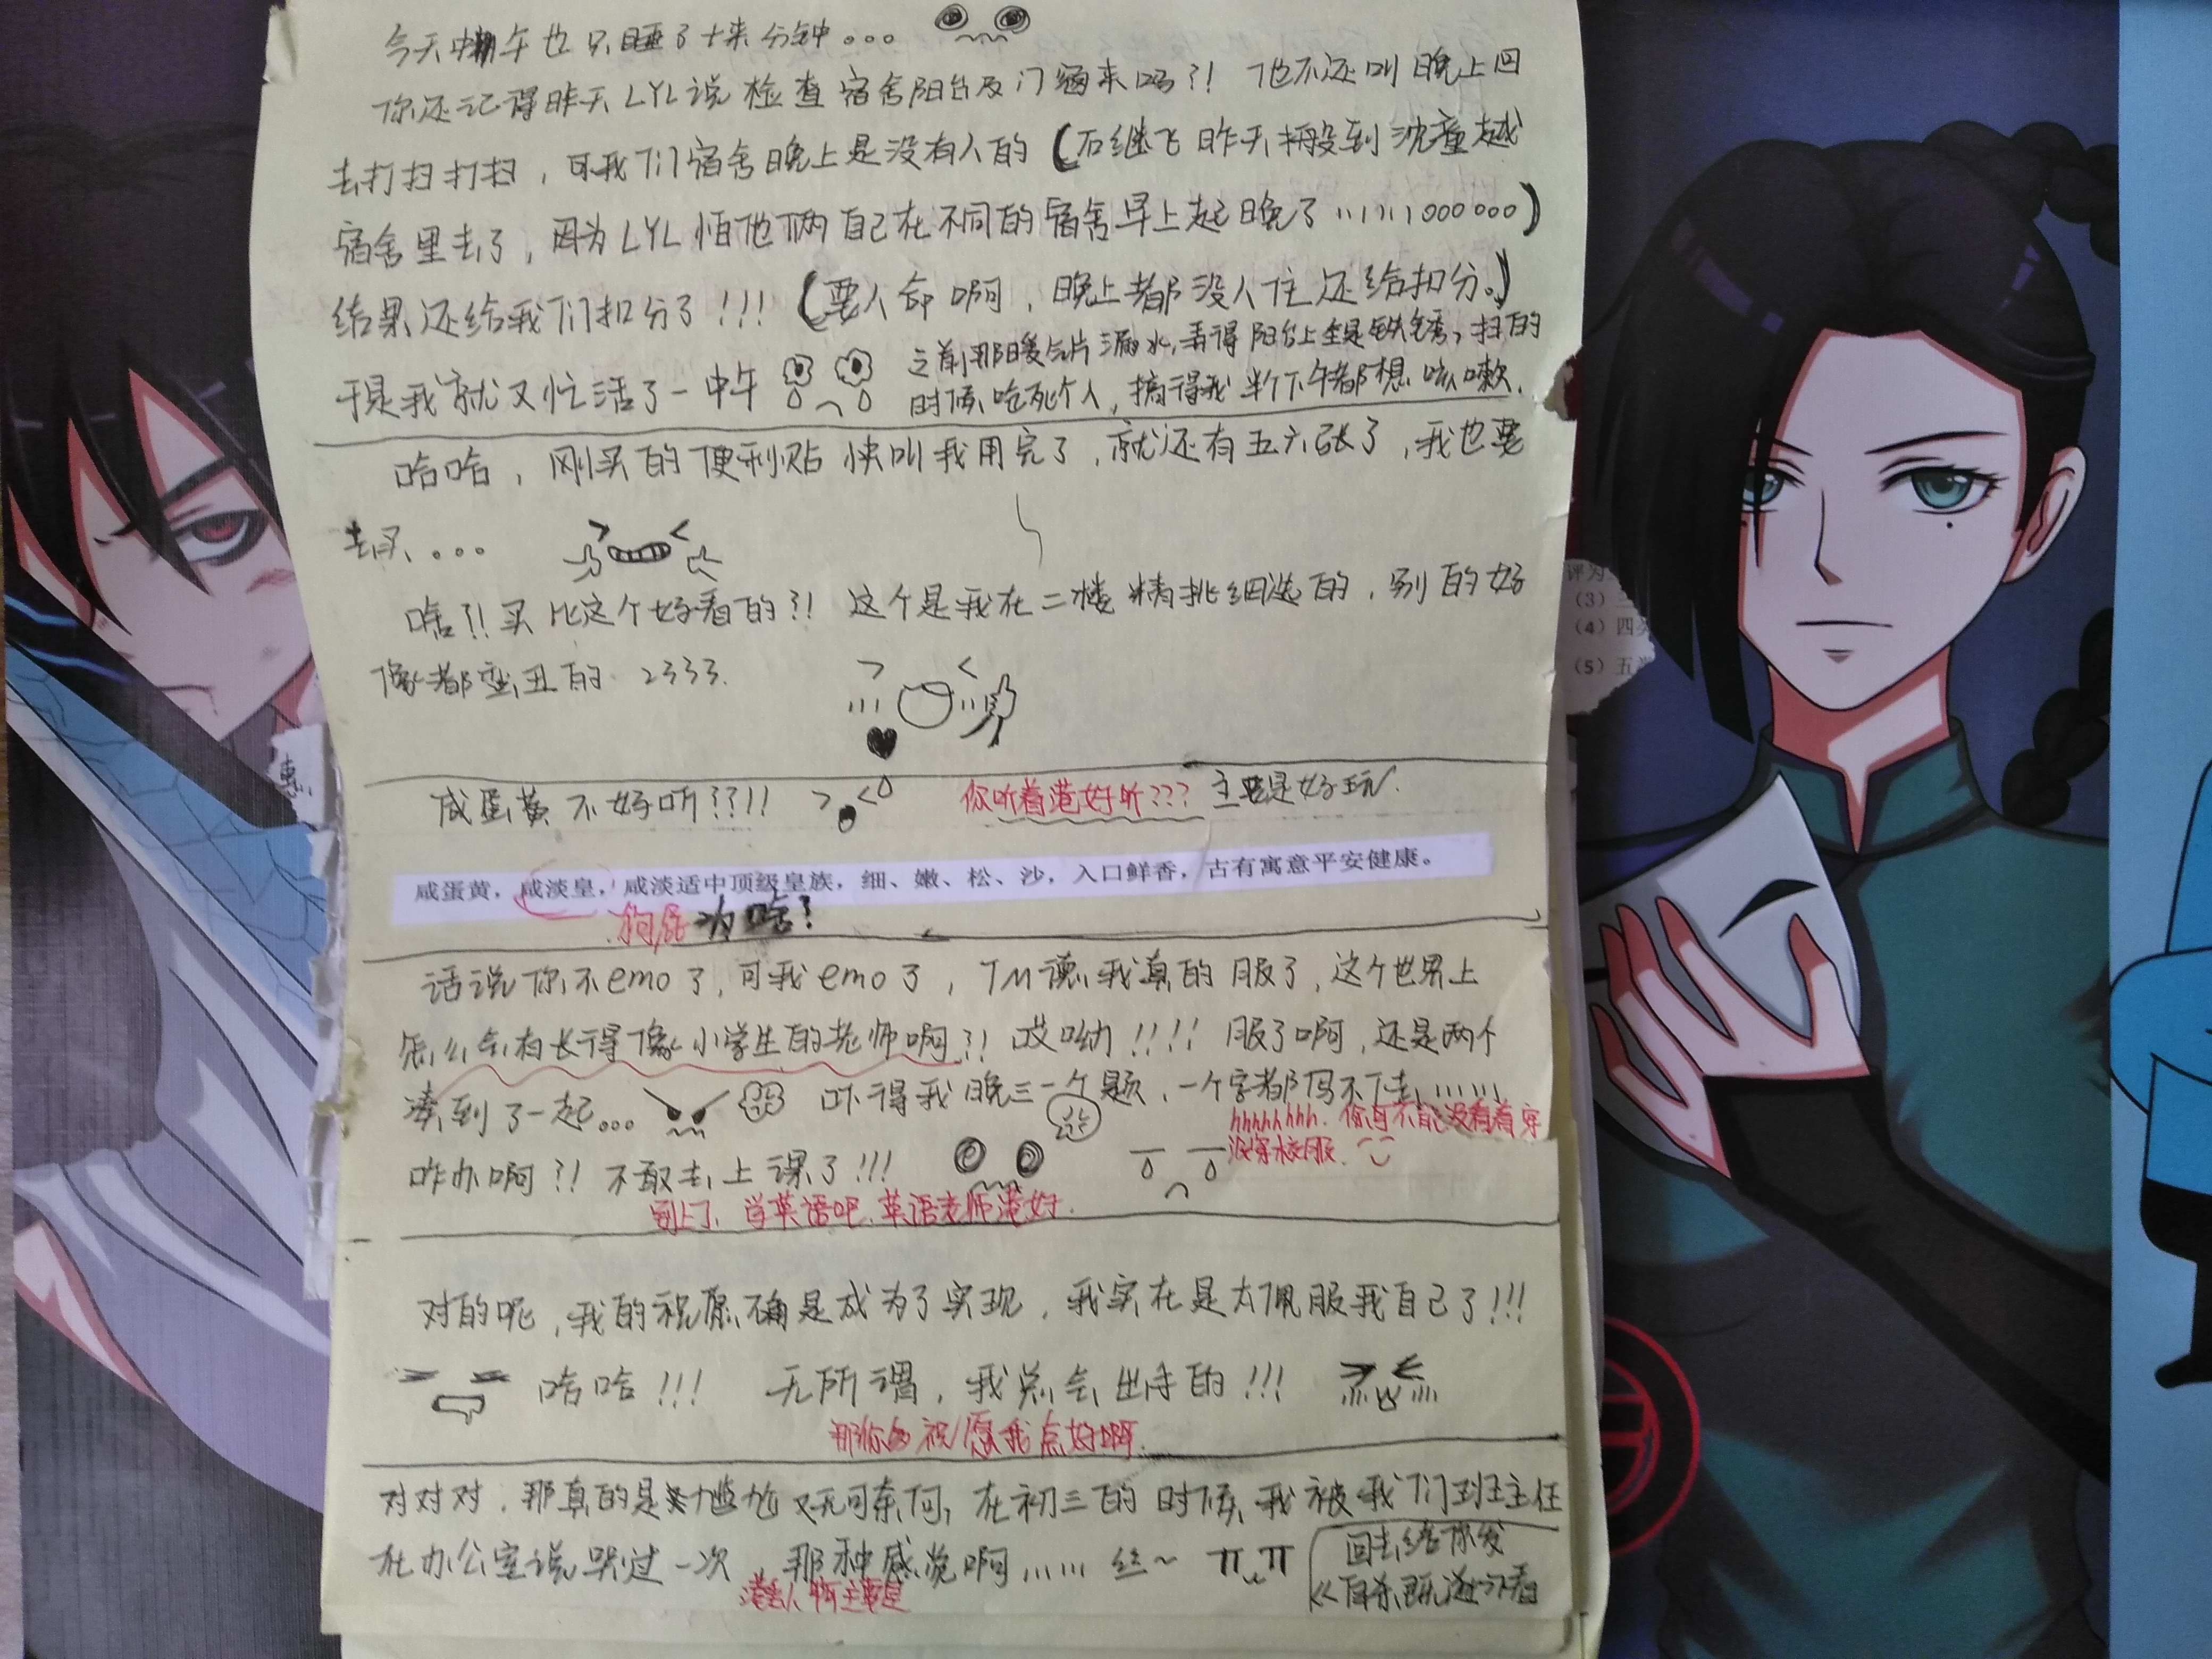 今天中午也只睡了十来分钟。。。
你还记得昨天LYL说检查宿舍阳台及门窗来吗?! 他不还叫晚上回
去打扫打扫，可我们宿舍晚上是没有人的（石继飞昨天搬到沈童越
宿舍里去了，因为LYL怕他俩自己在不同的宿舍早上起晚了 )
结果还给我们扣分了!!! (要人命啊，晚上都没人住还给扣分。)
于是我就又忙活了一中午
之前那暖气片漏水,弄得阳台上全是铁锈，扫的
时候呛死个人，搞得我半个下午都想咳嗽.
哈哈，刚买的便利贴快叫我用完了，就还有五六张了，我也要
去买。。。
啥?!! 买比这个好看的?! 这个是我在二楼精挑细选的，别的好
像都蛮丑的 2333.
咸蛋黄不好听??!! 你听着港好听??? 主要是好玩.
咸蛋黄，咸淡皇，咸淡适中顶级皇族，细、嫩、松、沙，入口鲜香，古有寓意平安健康。
狗屁 为啥!
话说你不emo了,可我emo了，TM德，我真的服了,这个世界上
怎么会有长得像小学生的老师啊?! 哎呦!!!! 服了啊,还是两个
凑到了一起... 吓得我晚三一个题、一个字都写不下去
hhhhhhhh. 你可不能没看着穿
没穿校服.
咋办啊?! 不敢去上课了!!!
别上了, 学英语吧, 英语老师港好.
对的呢，我的祝愿确是成为了实现，我实在是太佩服我自己了!!!
哈哈!!! 无所谓，我总会出手的!!!
那你多祝愿我点好啊.
对对对，那真的是尴尬又无可奈何，在初三的时候,我被我们班主任
在办公室说哭过一次，那种感觉啊…… 丝~
港丢人啊主要是
回去给你发